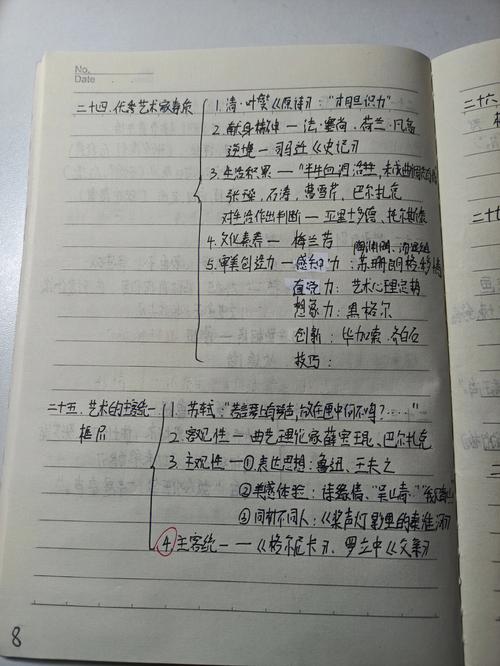 No.
Date
二十四.优秀艺术家素质
1.清·叶燮《原诗》:"才胆识力"
2.献身精神—法·塞尚、荷兰·凡高
逆境—司马迁《史记》
3.生活积累—"半生血泪
张璪,石涛,曹雪芹,巴尔扎克
对生活作出判断—亚里士多德、托尔斯泰
4.文化素养—梅兰芳
陶渊明、
5.审美创造力—感知力:苏珊朗格、
直觉力:艺术心理定势
想象力:黑格尔
创新:毕加索、齐白石
技巧:
二十五.艺术的主客统一
框尺
1.苏轼:"若言琴上有琴声,放在匣中何不鸣?……"
2.客观性—曲艺理论家薛宝琨、巴尔扎克
3.主观性—①表达思想:鲁迅、王夫之
②美感体验:徐
"吴山青"
③同材不同人:《桨声灯影里的秦淮河》
④主客统一—《格尔尼卡》、罗立中《父亲》
8
二十六、